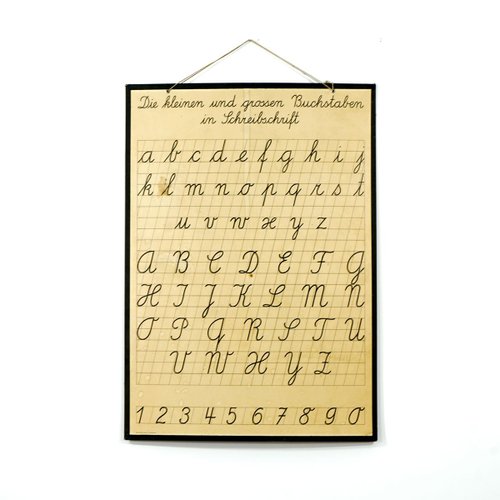 Die kleinen und grossen Buchstaben
in Schreibschrift
a b c d e f g h i j
k l m n o p q r s t
u v w x y z
A B C D E F G
H I J K L M N
O P Q R S T U
V W X Y Z
1 2 3 4 5 6 7 8 9 0